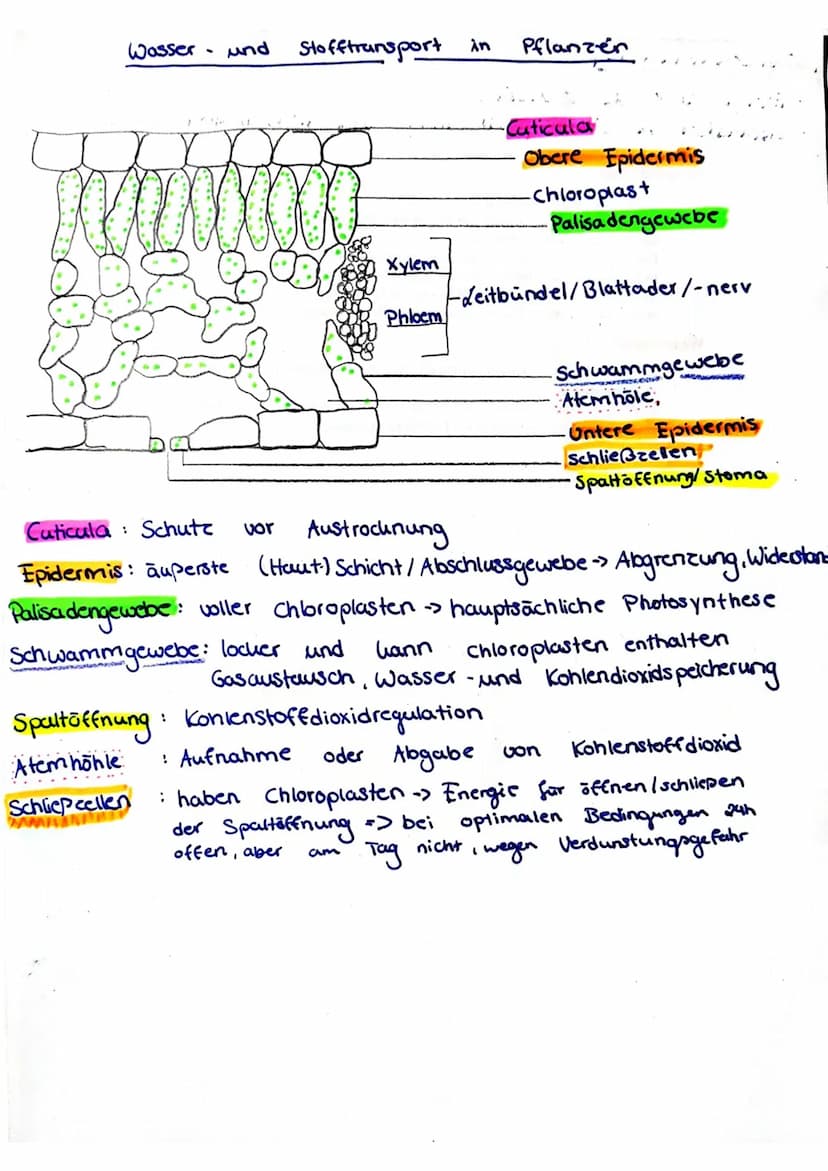 Wasser - und Stofftransport in Pflanzen
Cuticula
Obere Epidermis
Chloroplast
Palisadengewebe
Xylem
Leitbündel/Blattader/-nerv
Phloem
Schwammgewebe
Atemhöle,
Untere Epidermis
Schließzellen
Spaltöffnung/Stoma
Cuticula : Schutz vor Austrocknung
Epidermis : äuperste (Haut-) Schicht / Abschlussgewebe -> Abgrenzung, Widerstan
Palisadengewebe : voller Chloroplasten -> hauptsächliche Photosynthese
Schwammgewebe : locker und kann Chloroplasten enthalten
Gasaustausch, Wasser - und Kohlendioxidspeicherung
Spaltöffnung : Kohlenstoffdioxidregulation
Atemhöhle : Aufnahme oder Abgabe von Kohlenstoffdioxid
Schliepzellen : haben Chloroplasten -> Energie für öffnen/schliepen
der Spaltöffnung => bei optimalen Bedingungen 24h
offen, aber am Tag nicht, wegen Verdunstungsgefahr